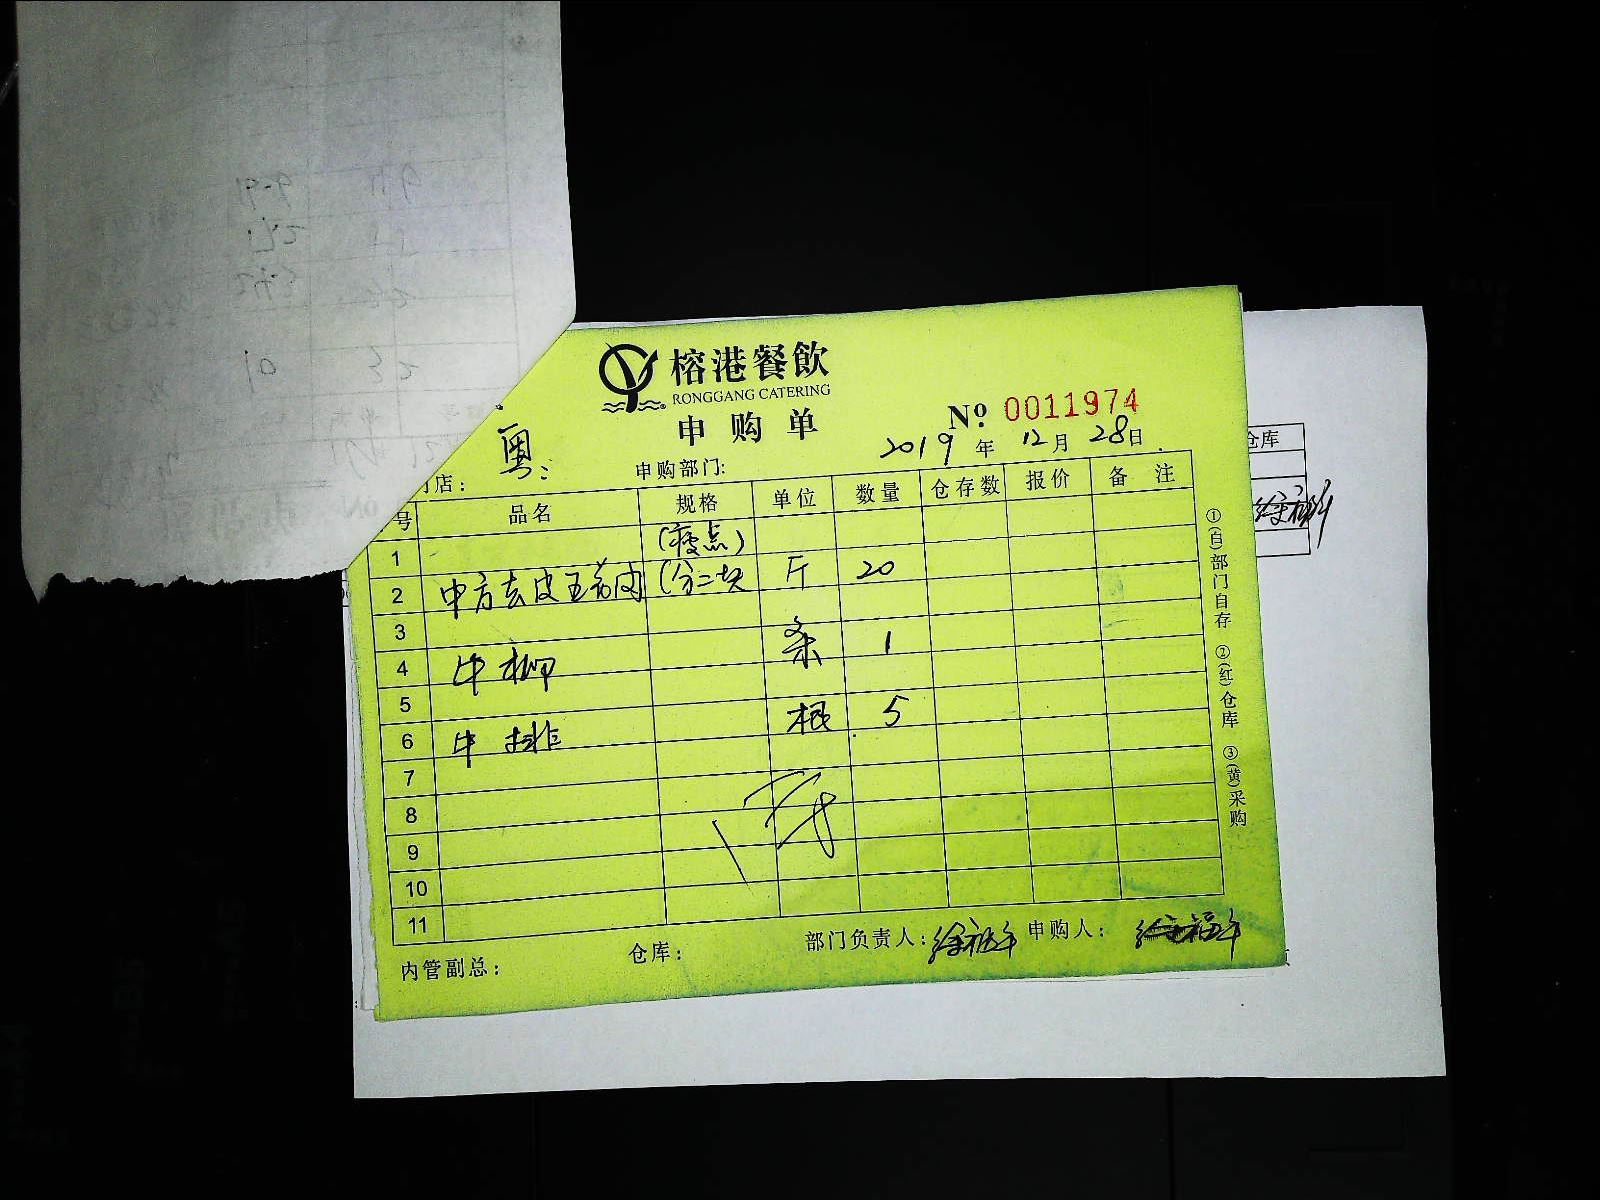 榕港餐飲
RONGGANG CATERING
申购单
№ 0011974
2019 年 12 月 28 日
店: 粤: 申购部门:
号 品名 规格 单位 数量 仓存数 报价 备 注
1 (瘦点)
2 中方去皮五花肉 (分二块 斤 20
3
4 牛柳 条 1
5
6 牛排 根 5
7
8
9
10
11
内管副总: 仓库: 部门负责人: 徐福午 申购人: 徐福午
①(白)部门自存 ②(红)仓库 ③(黄)采购
仓库